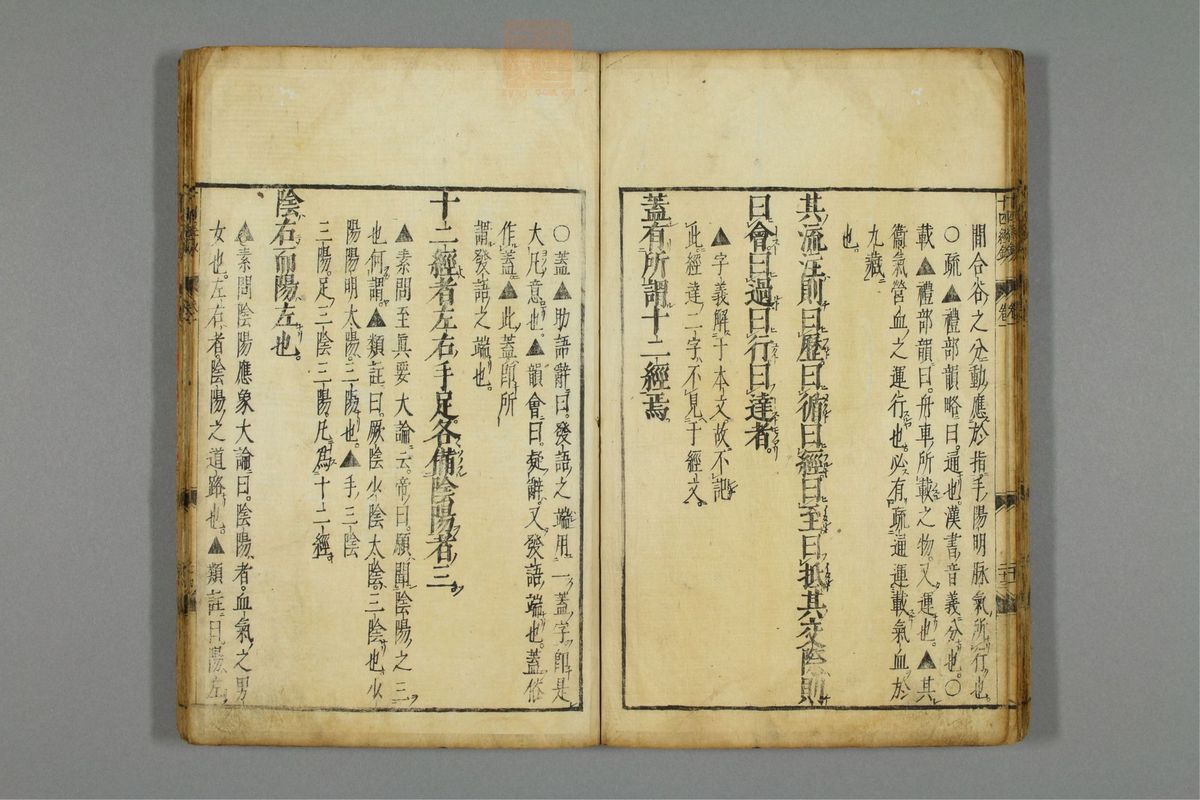 間合谷之分動應於指手陽明脉氣所行也
○疏▲禮部韻略曰通也漢書音義分也○
載▲禮部韻曰舟車所載之物又運也▲其
衞氣營血之運行也必有疏通運載氣血於
九藏
也
其流注則曰歷曰循曰經曰至曰抵其交際則
曰會曰過曰行曰達者
▲字義解于本文故不記
此經達二字不見于經文
蓋有所謂十二經焉
○蓋▲助語辭曰發語之端用一蓋字卽是
大凡意也▲韻會曰疑辭又發語端也蓋俗
作盖▲此蓋卽所
謂發語之端也
十二經者左右手足各備陰陽者三
▲素問至眞要大論云帝曰願聞陰陽之三
也何謂▲類註曰厥陰少陰太陰三陰也少
陽陽明太陽三陽也▲手三陰
三陽足三陰三陽凡為十二經
陰右而陽左也
▲素問陰陽應象大論曰陰陽者血氣之男
女也左右者陰陽之道路也▲類註曰陽左